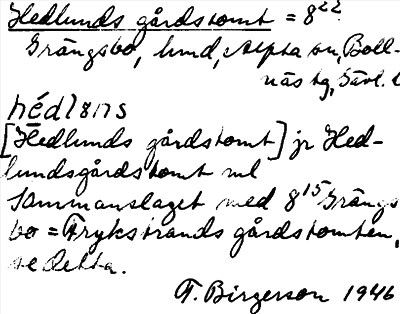 Hedlunds gårdstomt = 8²²
Grängsbo, hmd, Alfta sn, Boll-
näs tg, Gävl. l
hédlꞩns
[Hedlunds gårdstomt] jr Hed-
lundsgårdstomt ml
Sammanslaget med 8¹⁵ Grängs
bo = Frykstrands gårdstomten,
se detta.
F. Birgerson 1946